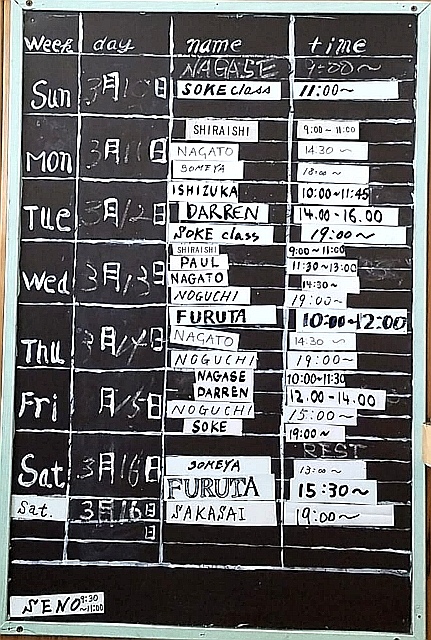 Week day name time
NAGASE 9:00~
Sun 3月10日 SOKE class 11:00~
SHIRAISHI 9:00~11:00
Mon 3月11日 NAGATO 14:30~
SOMEYA 18:00~
ISHIZUKA 10:00~11:45
Tue 3月12日 DARREN 14.00-16.00
SOKE class 19:00~
SHIRAISHI 9:00~11:00
PAUL 11:30~13:00
Wed 3月13日 NAGATO 14:30~
NOGUCHI 19:00~
FURUTA 10:00~12:00
Thu 3月14日 NAGATO 14:30~
NOGUCHI 19:00~
NAGASE 10:00~11:30
Fri 月15日 DARREN 12.00-14.00
NOGUCHI 15:00~
SOKE 19:00~
REST
Sat 3月16日 SOMEYA 13:00~
FURUTA 15:30~
Sat. 3月16日 SAKASAI 19:00~
日
SENO 9:30~11:00